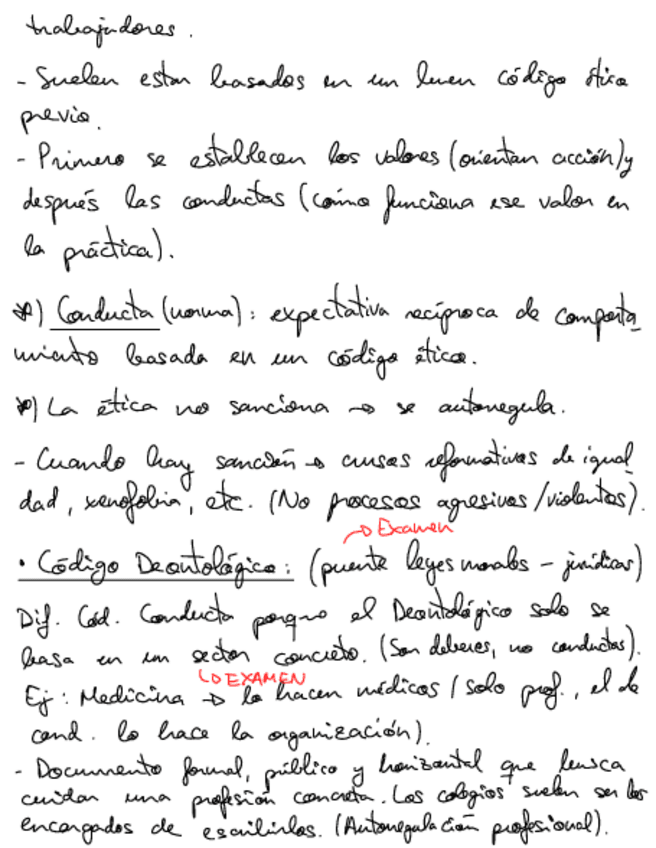 trabajadores.
- Suelen estar basados en un buen código ético
previo.
- Primero se establecen los valores (orientan acción) y
después las conductas (cómo funciona ese valor en
la práctica).
*) Conducta (norma): expectativa recíproca de comporta
miento basada en un código ético.
*) La ética no sanciona → se autorregula.
- Cuando hay sanción → cursos reformativos de igual
dad, xenofobia, etc. (No procesos agresivos/violentos).
→ Examen
• Código Deontológico: (puente leyes morales - jurídicas)
Dif. Cód. Conducta porque el Deontológico solo se
basa en un sector concreto. (Son deberes, no conductas).
↳ EXAMEN
Ej: Medicina → lo hacen médicos (solo prof., el de
cond. lo hace la organización).
- Documento formal, público y horizontal que busca
cuidar una profesión concreta. Los colegios suelen ser los
encargados de escribirlos. (Autorregulación profesional).